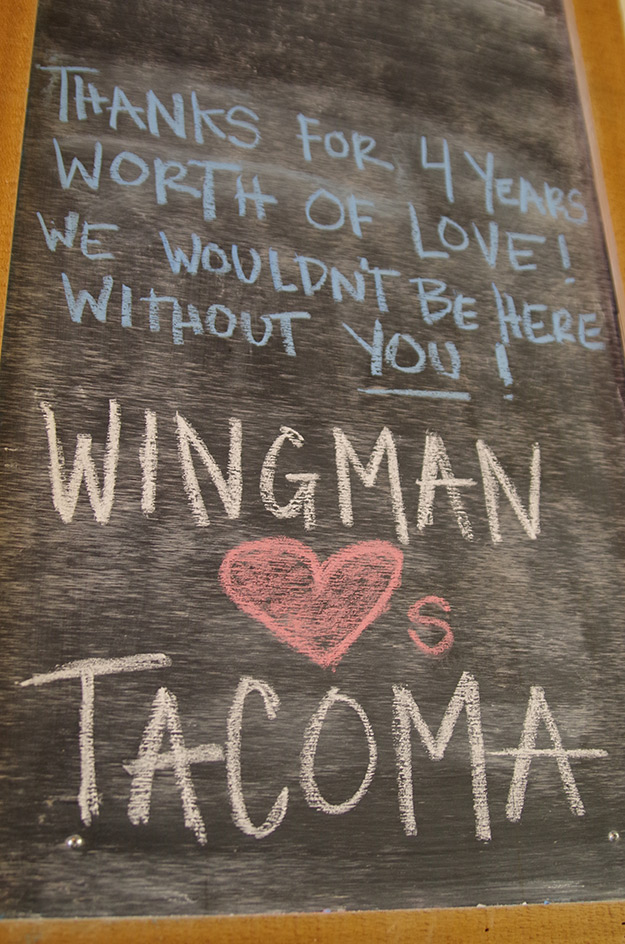 THANKS FOR 4 YEARS
WORTH OF LOVE!
WE WOULDN'T BE HERE
WITHOUT YOU!
WINGMAN
♥s
TACOMA